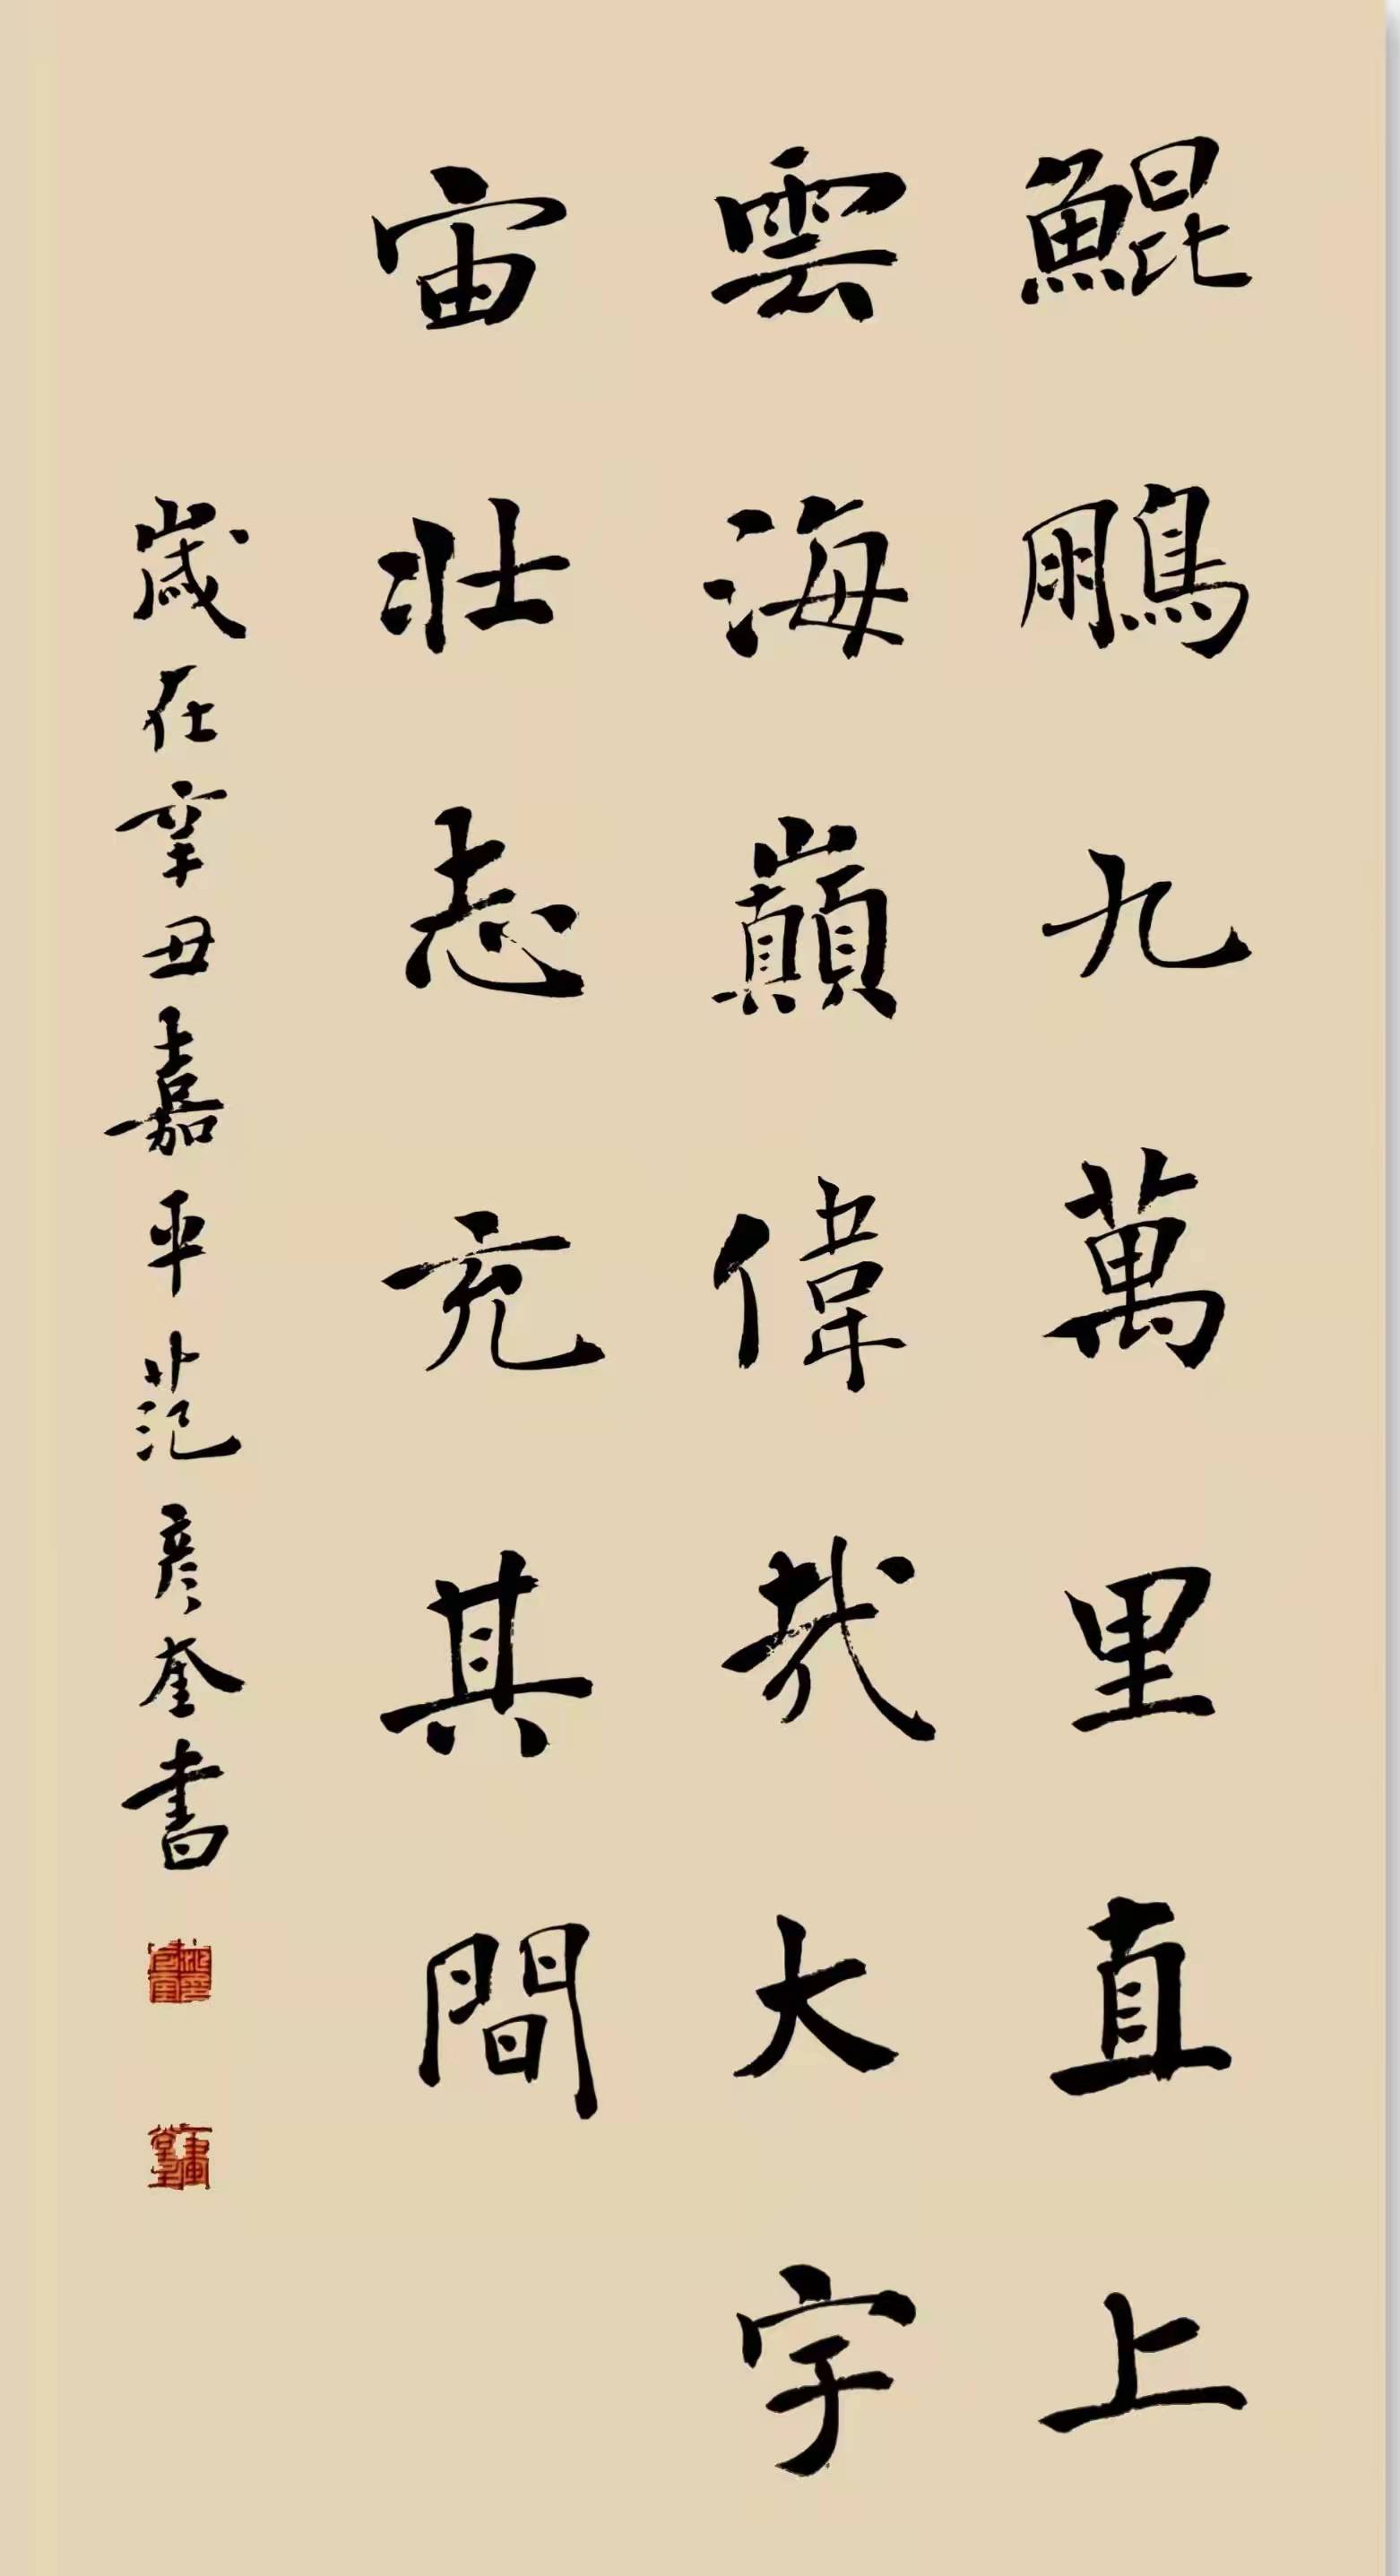 鯤鵬九萬里直上
雲海巔偉哉大宇
宙壯志充其間
歲在辛丑嘉平范彦奎書